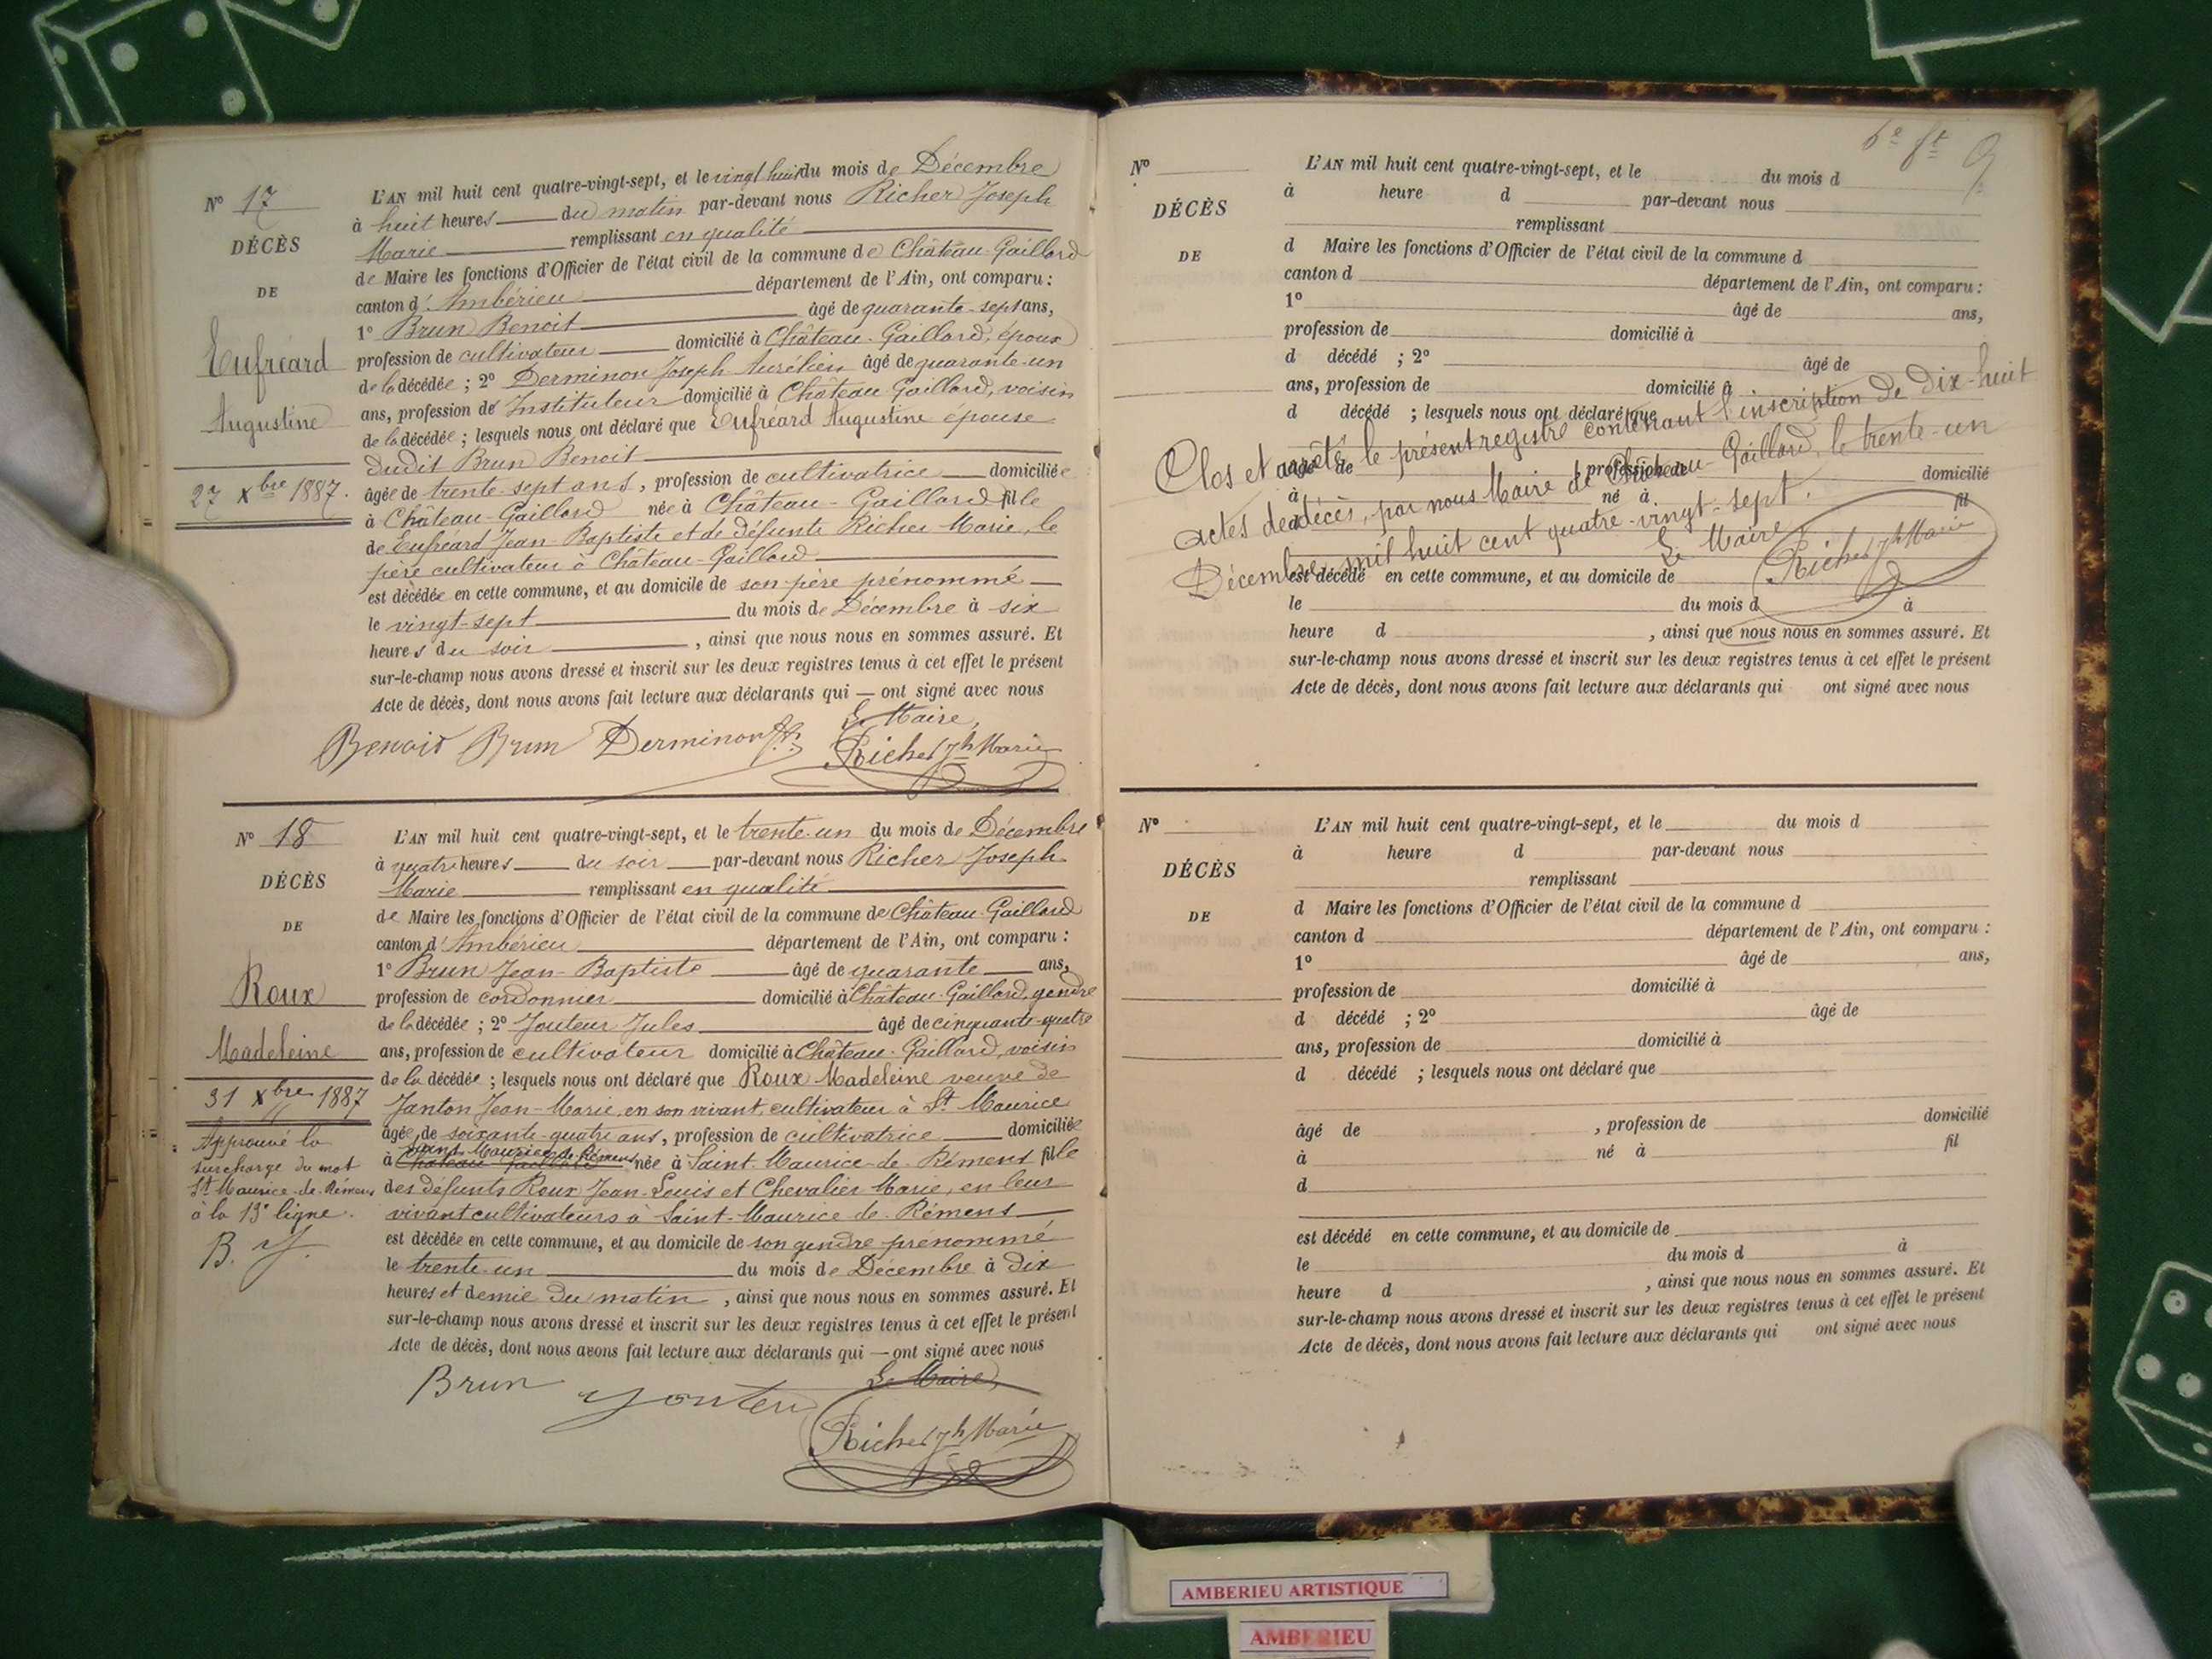 N° 17
DÉCÈS
DE
Eufréard
Augustine
27 Xbre 1887.
L'AN mil huit cent quatre-vingt-sept, et le vingt huit du mois de Décembre
à huit heures du matin par-devant nous Richer Joseph
Marie remplissant en qualité
de Maire les fonctions d'Officier de l'état civil de la commune de Château-Gaillard
canton d'Ambérieu département de l'Ain, ont comparu :
1° Brun Benoit âgé de quarante-sept ans,
profession de cultivateur domicilié à Château-Gaillard, époux
de la décédée ; 2° Derminon Joseph Aurélien âgé de quarante-un
ans, profession de Instituteur domicilié à Château-Gaillard, voisin
de la décédée ; lesquels nous ont déclaré que Eufréard Augustine épouse
dudit Brun Benoit
âgée de trente-sept ans, profession de cultivatrice domiciliée
à Château-Gaillard née à Château-Gaillard fille
de Eufréard Jean-Baptiste et de défunte Richer Marie, le
père cultivateur à Château-Gaillard
est décédée en cette commune, et au domicile de son père prénommé
le vingt-sept du mois de Décembre à six
heures du soir, ainsi que nous nous en sommes assuré. Et
sur-le-champ nous avons dressé et inscrit sur les deux registres tenus à cet effet le présent
Acte de décès, dont nous avons fait lecture aux déclarants qui — ont signé avec nous
Le Maire,
Benoit Brun Derminon Richer Jh Marie
N° 18
DÉCÈS
DE
Roux
Madeleine
31 Xbre 1887
Approuvé la
surcharge du mot
St Maurice-de-Rémens
à la 13e ligne.
B. J.
L'AN mil huit cent quatre-vingt-sept, et le trente-un du mois de Décembre
à quatre heures du soir par-devant nous Richer Joseph
Marie remplissant en qualité
de Maire les fonctions d'Officier de l'état civil de la commune de Château-Gaillard
canton d'Ambérieu département de l'Ain, ont comparu :
1° Brun Jean-Baptiste âgé de quarante ans,
profession de cordonnier domicilié à Château-Gaillard, gendre
de la décédée ; 2° Jouteur Jules âgé de cinquante-quatre
ans, profession de cultivateur domicilié à Château-Gaillard, voisin
de la décédée ; lesquels nous ont déclaré que Roux Madeleine veuve de
Janton Jean-Marie, en son vivant cultivateur à St Maurice
âgée de soixante-quatre ans, profession de cultivatrice domiciliée
Saint Maurice-de-Rémens
à Château-Gaillard née à Saint-Maurice-de-Rémens fille
des défunts Roux Jean-Louis et Chevalier Marie, en leur
vivant cultivateurs à Saint-Maurice-de-Rémens
est décédée en cette commune, et au domicile de son gendre prénommé
le trente-un du mois de Décembre à dix
heures et demie du matin, ainsi que nous nous en sommes assuré. Et
sur-le-champ nous avons dressé et inscrit sur les deux registres tenus à cet effet le présent
Acte de décès, dont nous avons fait lecture aux déclarants qui — ont signé avec nous
Le Maire,
Brun Jouteur
Richer Jh Marie
9
N°
DÉCÈS
DE
L'AN mil huit cent quatre-vingt-sept, et le du mois d
à heure d par-devant nous
remplissant
d Maire les fonctions d'Officier de l'état civil de la commune d
canton d département de l'Ain, ont comparu :
1° âgé de ans,
profession de domicilié à
d décédé ; 2° âgé de
ans, profession de domicilié à
d décédé ; lesquels nous ont déclaré que
âgé de , profession de domicilié
à né à fil
d
Clos et arrêté le présent registre contenant l'inscription de dix-huit
actes de décès, par nous Maire de Château-Gaillard, le trente-un
Décembre mil huit cent quatre-vingt-sept.
Le Maire
Richer Jh Marie
est décédé en cette commune, et au domicile de
le du mois d à
heure d , ainsi que nous nous en sommes assuré. Et
sur-le-champ nous avons dressé et inscrit sur les deux registres tenus à cet effet le présent
Acte de décès, dont nous avons fait lecture aux déclarants qui ont signé avec nous
N°
DÉCÈS
DE
L'AN mil huit cent quatre-vingt-sept, et le du mois d
à heure d par-devant nous
remplissant
d Maire les fonctions d'Officier de l'état civil de la commune d
canton d département de l'Ain, ont comparu :
1° âgé de ans,
profession de domicilié à
d décédé ; 2° âgé de
ans, profession de domicilié à
d décédé ; lesquels nous ont déclaré que
âgé de , profession de domicilié
à né à fil
d
est décédé en cette commune, et au domicile de
le du mois d à
heure d , ainsi que nous nous en sommes assuré. Et
sur-le-champ nous avons dressé et inscrit sur les deux registres tenus à cet effet le présent
Acte de décès, dont nous avons fait lecture aux déclarants qui ont signé avec nous
AMBERIEU ARTISTIQUE
AMBERIEU